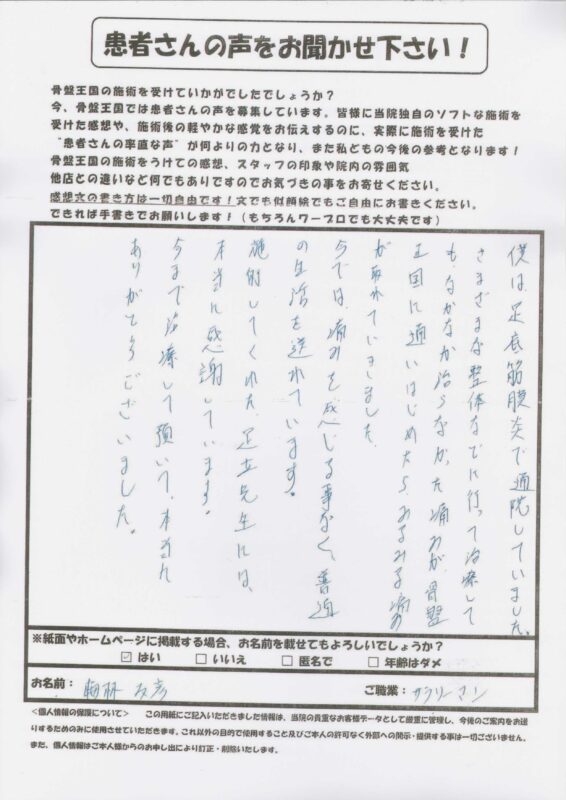 患者さんの声をお聞かせ下さい！
骨盤王国の施術を受けていかがでしたでしょうか？
今、骨盤王国では患者さんの声を募集しています。皆様に当院独自のソフトな施術を
受けた感想や、施術後の軽やかな感覚をお伝えするのに、実際に施術を受けた
“患者さんの率直な声”が何よりの力となり、また私どもの今後の参考となります！
骨盤王国の施術をうけての感想、スタッフの印象や院内の雰囲気
他店との違いなど何でもありですのでお気づきの事をお寄せください。
感想文の書き方は一切自由です！文でも似顔絵でもご自由にお書きください。
できれば手書きでお願いします！（もちろんワープロでも大丈夫です）
僕は足底筋膜炎で通院していました。
さまざまな整体などに行って治療して
も、なかなか治らなかった痛みが、骨盤
王国に通いはじめたら、みるみる痛み
が取れていきました。
今では、痛みを感じる事なく、普通
の生活を送れています。
施術してくれた、足立先生には、
本当に感謝しています。
今まで治療して頂いて、本当に
ありがとうございました。
※紙面やホームページに掲載する場合、お名前を載せてもよろしいでしょうか？
☑ はい □ いいえ □ 匿名で □ 年齢はダメ
お名前： 友彦 ご職業：サラリーマン
＜個人情報の保護について＞ この用紙にご記入いただきました情報は、当院の貴重なお客様データとして厳重に管理し、今後のご案内をお送
りするためのみに使用させていただきます。これ以外の目的で使用すること及びご本人の許可なく外部への開示・提供する事は一切ございません。
また、個人情報はご本人様からのお申し出により訂正・削除いたします。